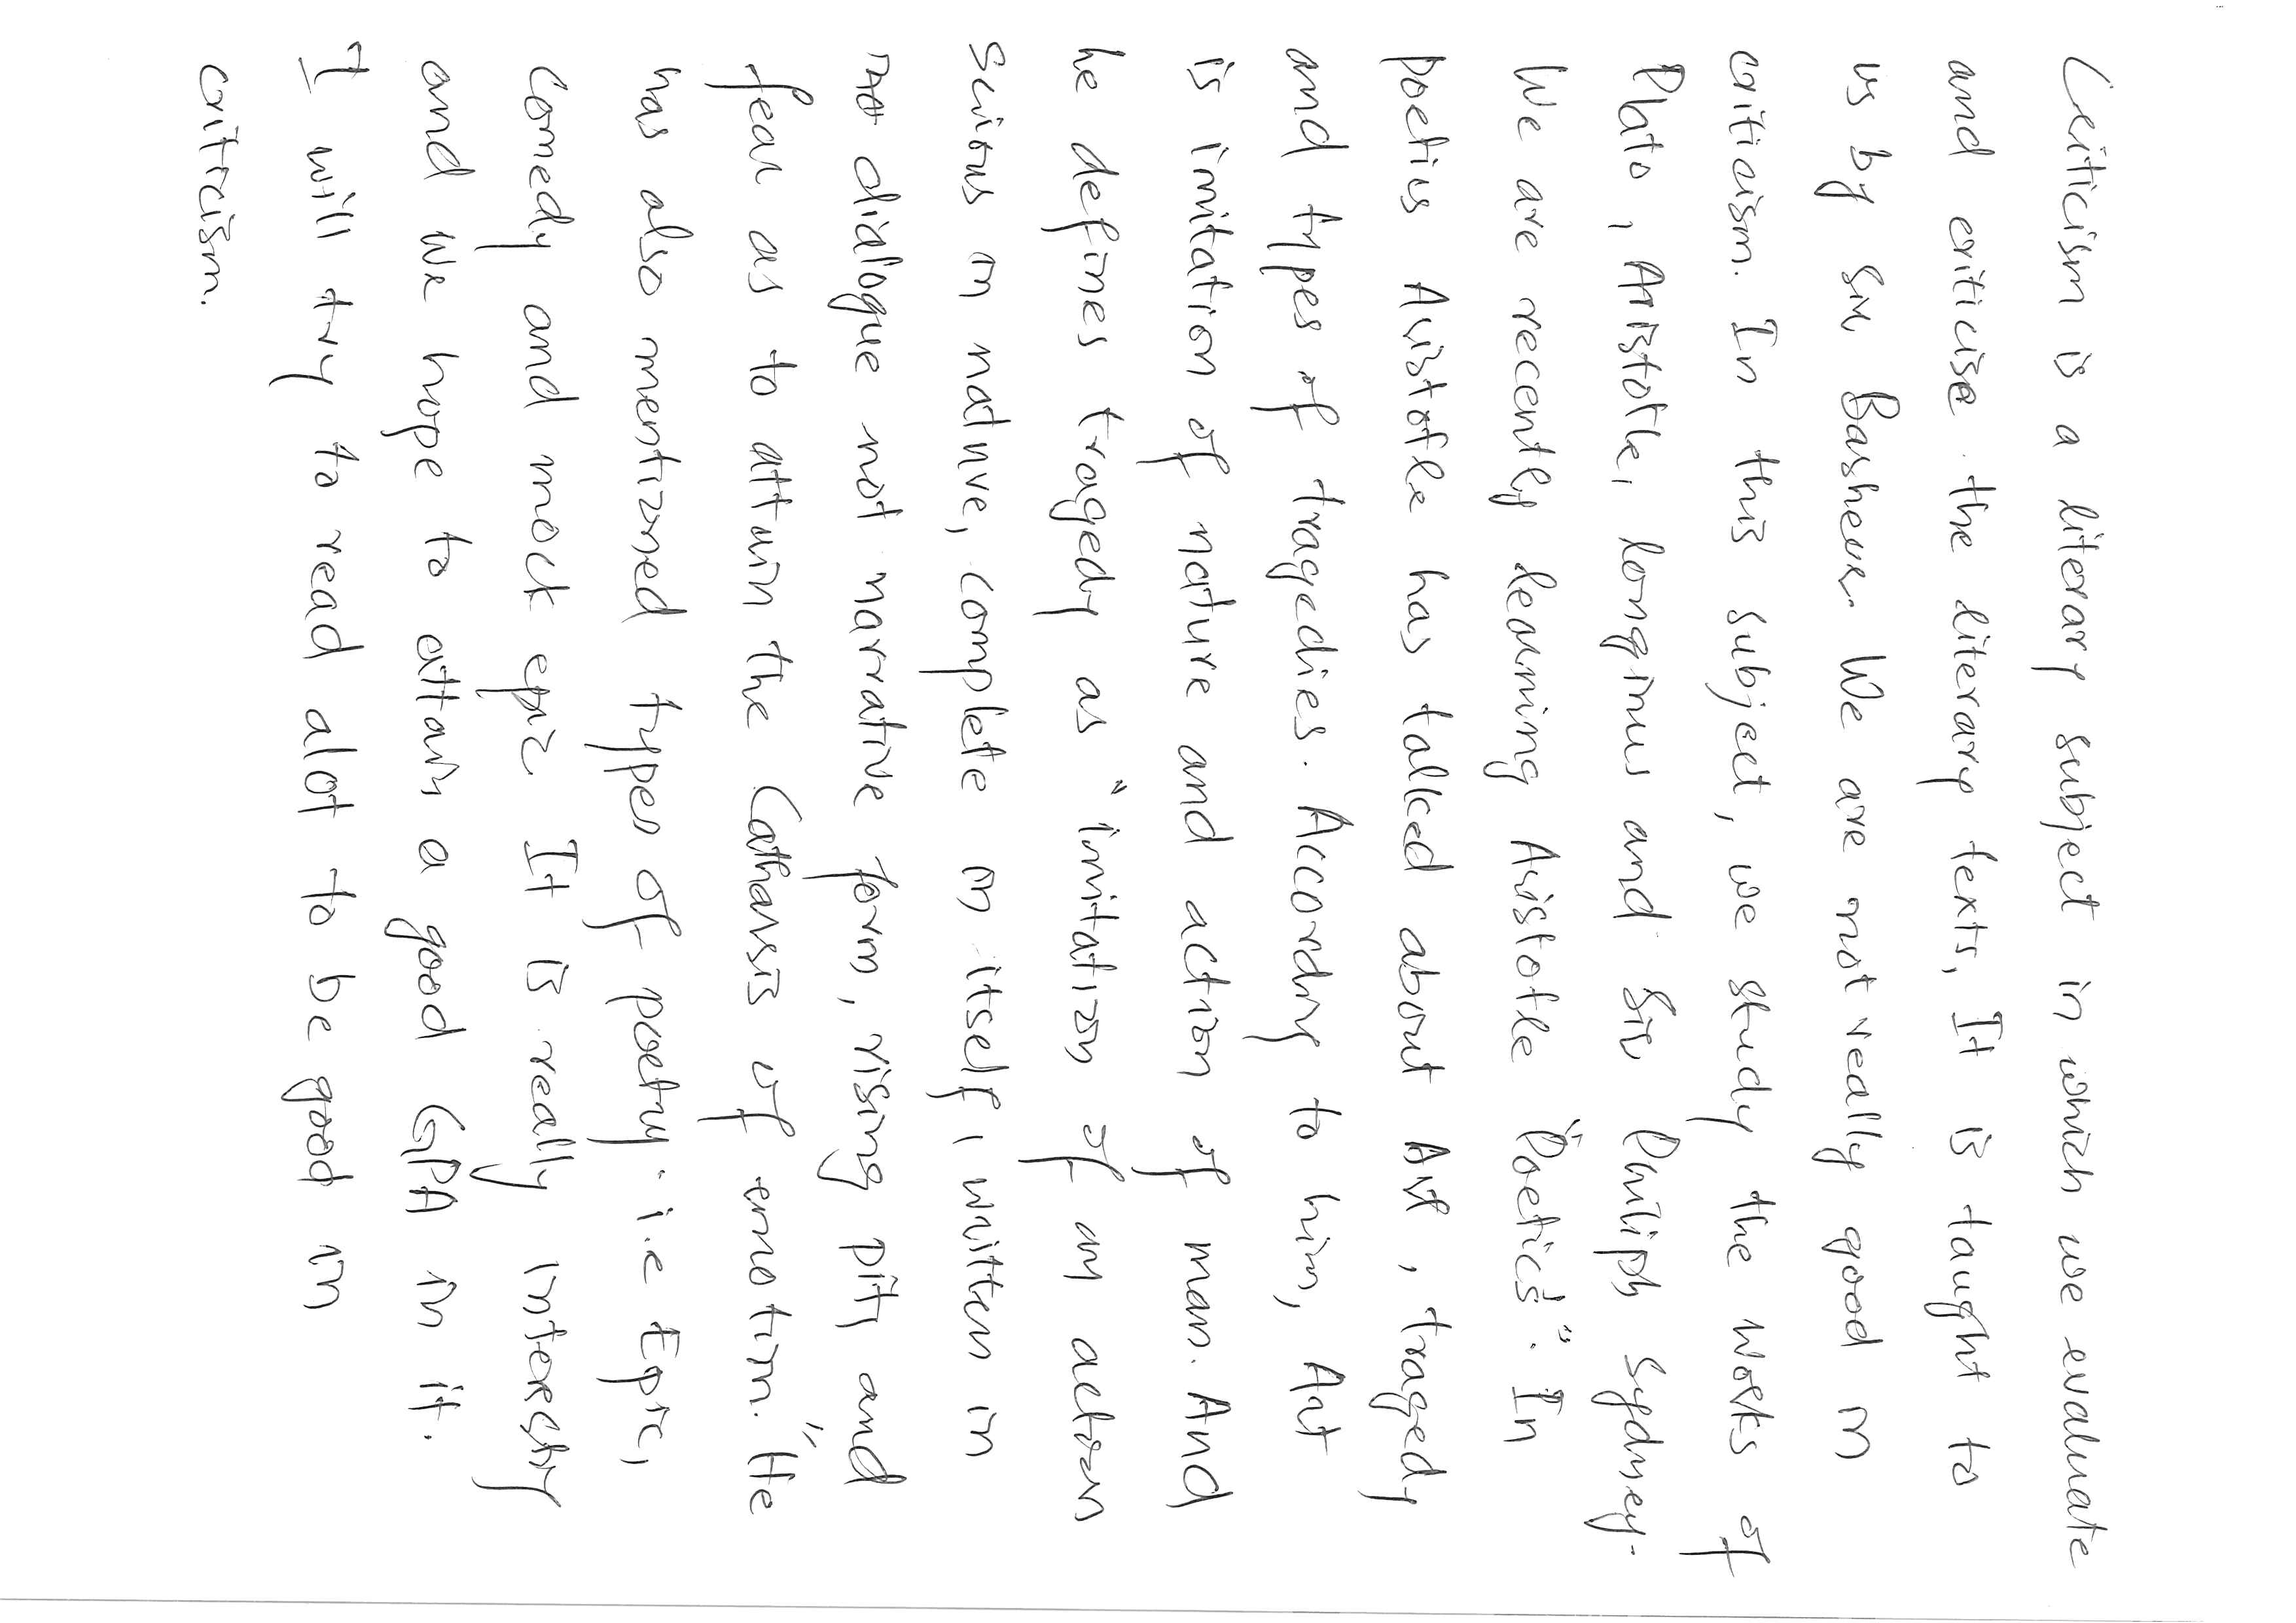 Criticism is a literary subject in which we evaluate
and criticise the literary texts, It is taught to
us by Sir Basheer. We are not really good in
criticism. In this subject, we study the works of
Plato, Aristotle, longinus and Sir Philiph Sydney.
We are recently learning Aristotle "Poetics". In
poetics Aristotle has talked about Art, tragedy
and types of tragedies. According to him, Art
is imitation of nature and action of man. And
he defines tragedy as "imitation of an action
serious in nature, complete in itself, written in
dialogue not narrative form, rising pity and
fear as to attain the Catharsis of emotion." He
has also mentioned types of poetry. i.e Epic,
comedy and mock epic It is really interesting
and we hope to attain a good GPA in it.
I will try to read alot to be good in
criticism.